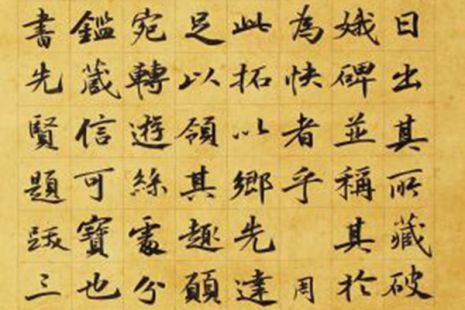 日出其所藏破
娥碑並稱其於
為快者乎 周
此拓以鄉先達
足以領其趣顧
宛轉遊絲處分
鑑藏信可寶也
書先賢題跋三